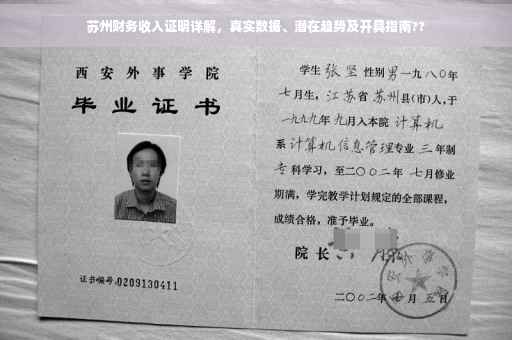 苏州财务收入证明详解，真实数据、潜在趋势及开具指南??
西安外事学院
毕业证书
证书编号:0209130411
学生 张坚 性别 男 一九八〇年
七月生，江苏省 苏州县(市)人，于
一九九九年 九月入本院 计算机
系 计算机信息管理专业 三 年制
专 科学习，至二〇〇二年 七月修业
期满，学完教学计划规定的全部课程，
成绩合格，准予毕业。
院长
二〇〇二年 月 五 日